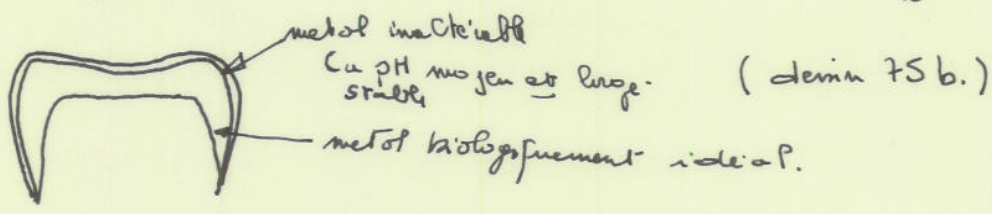 metal inaltérable
Ca pH moyen et large.
stable
(demin 75 b.)
metal biologiquement idéal.